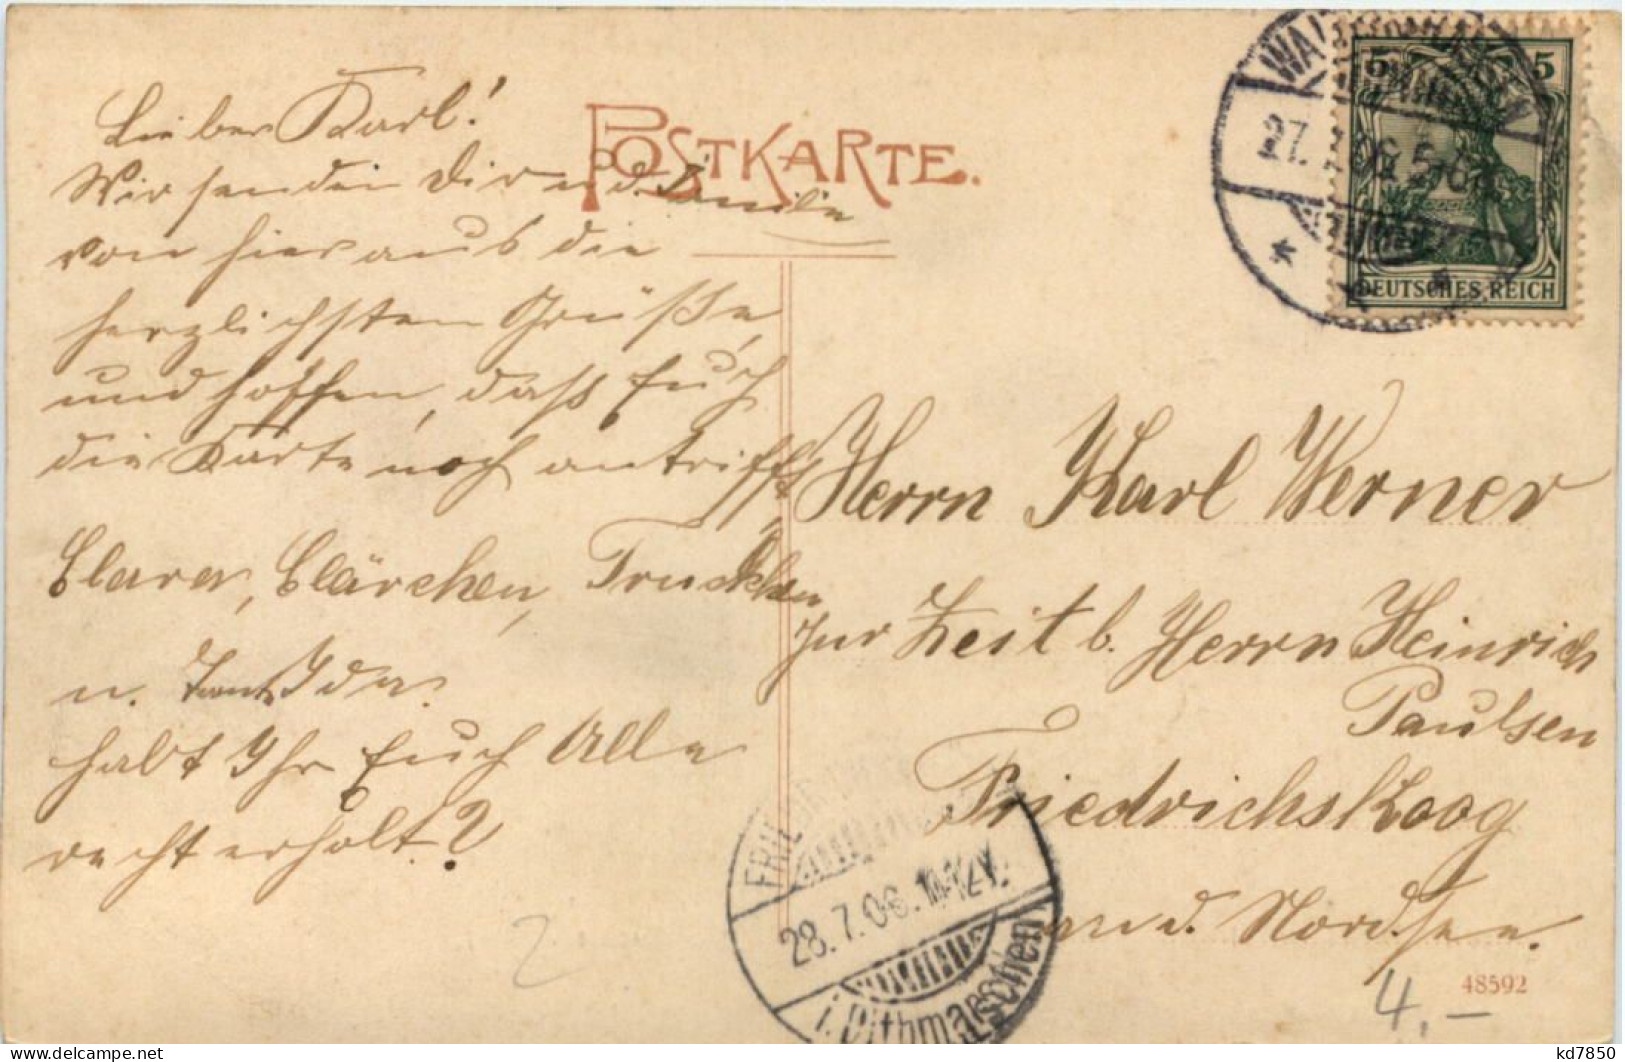 Lieber Karl!
POSTKARTE.
Wir senden Dir u. d. Familie
von hier aus die
herzlichsten Grüße,
und hoffen, daß Euch
die Karte noch antrifft.
Clara, Clärchen, Trudchen
u. Tante Ida.
habt Ihr Euch Alle
recht erholt?
5 5
DEUTSCHES REICH
27. 7. 06. 5-6
Herrn Karl Werner
zur Zeit b. Herrn Heinrich
Paulsen
Friedrichskoog
an d. Nordsee.
28.7.06.
i. Dithmarschen
2
4,-
48592
kd7850